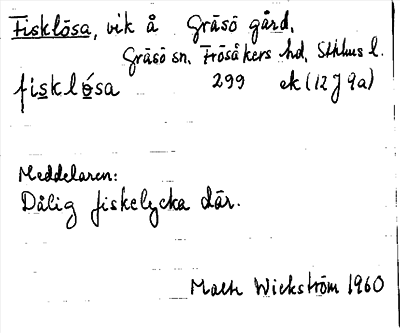 Fisklösa, vik å Gräsö gård,
Gräsö sn, Frösåkers hd, Sthlms l.
fisklǿsa 299 ek (12J 9a)
Meddelaren:
Dålig fiskelycka där.
Wickström 1960